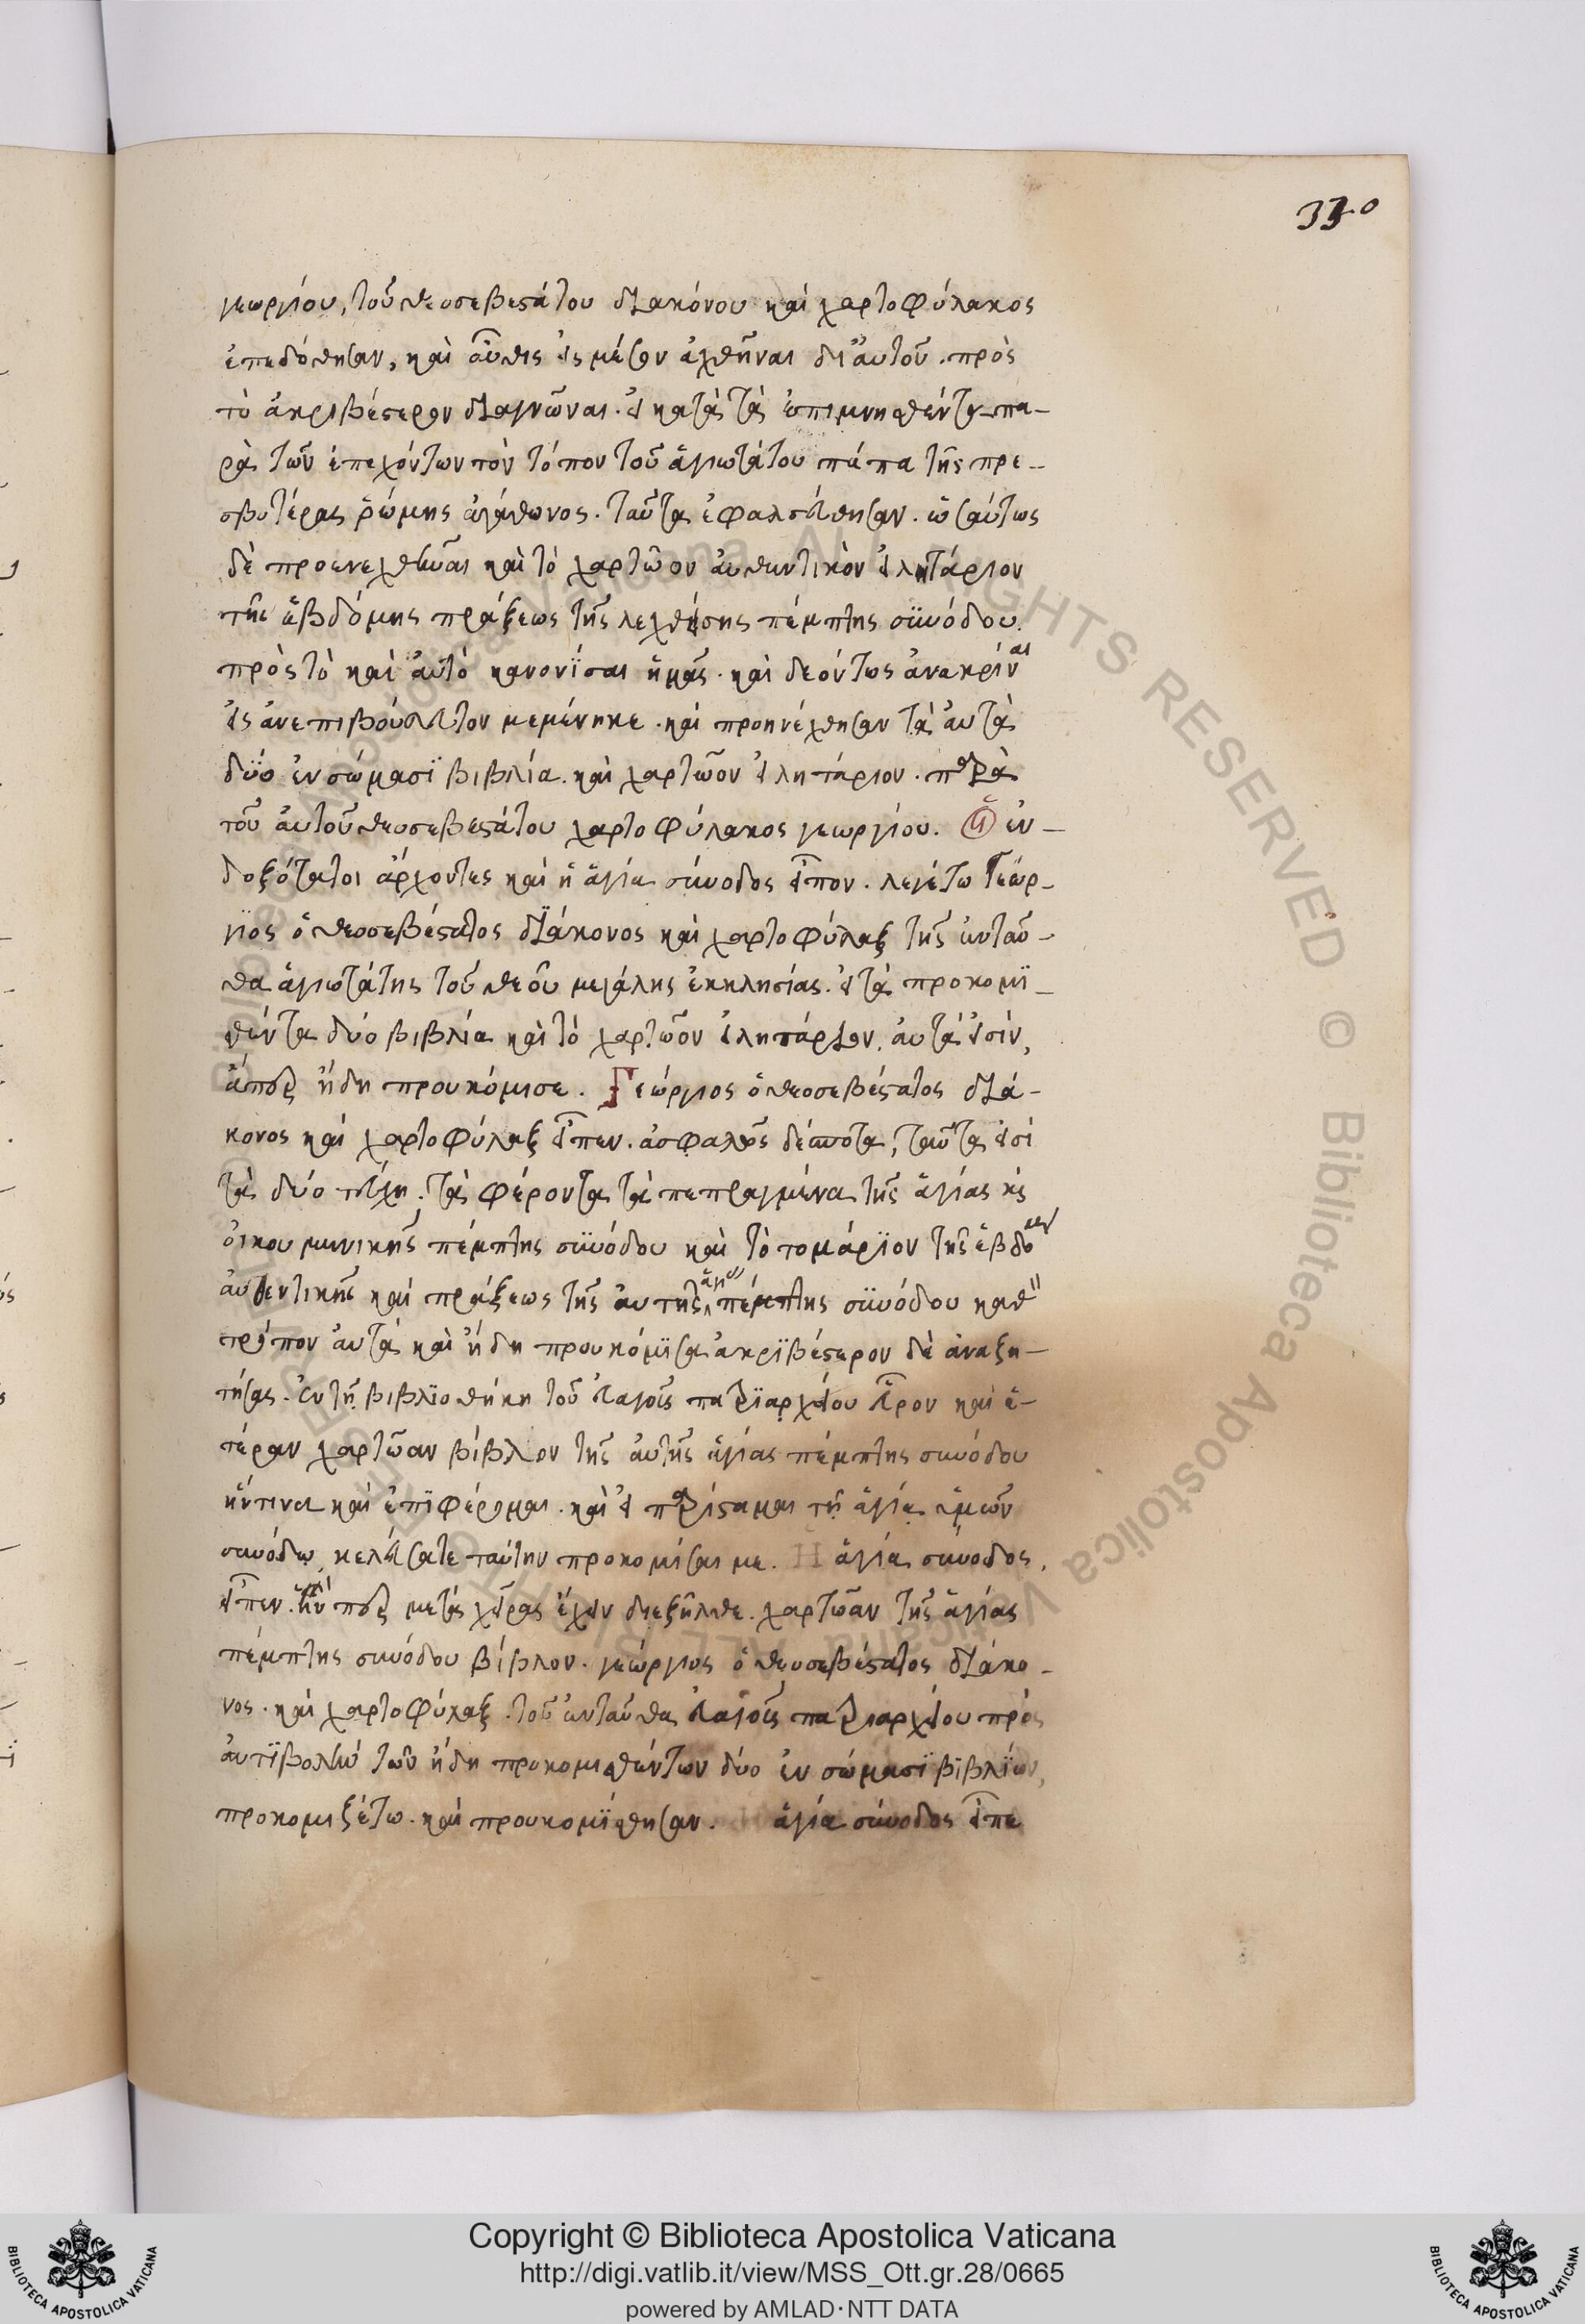 330
γεωργίου, τοῦ θεοσεβεστάτου διακόνου καὶ χαρτοφύλακος
ἐπεδόθησαν, καὶ αὖθις εἰς μέσον ἀχθῆναι δι' αὐτοῦ. πρὸς
τὸ ἀκριβέστερον διαγνῶναι. εἰ κατὰ τὰ ἐπιμνησθέντα πα-
ρὰ τῶν ἐπεχόντων τὸν τόπον τοῦ ἁγιωτάτου πάπα τῆς πρε-
σβυτέρας ῥώμης ἀγάθωνος. ταῦτα ἐφαλσεύθησαν. ὡσαύτως
δὲ προενεχθῆναι καὶ τὸ χαρτῶον αὐθεντικὸν εἰλητάριον
τῆς ἑβδόμης πράξεως τῆς λεχθείσης πέμπτης συνόδου.
πρὸς τὸ καὶ αὐτὸ κανονίσαι ἡμᾶς. καὶ δεόντως ἀνακρῖναι
εἰς ἀνεπιβούλευτον μεμένηκε. καὶ προηνέχθησαν τὰ αὐτὰ
δύο ἐν σώμασϊ βιβλία. καὶ χαρτῶον εἰλητάριον. παρὰ
τοῦ αὐτοῦ θεοσεβεστάτου χαρτοφύλακος γεωργίου. Οἱ ἐν-
δοξότατοι ἄρχοντες καὶ ἡ ἁγία σύνοδος εἶπον. λεγέτω Γεώρ-
γιος ὁ θεοσεβέστατος διάκονος καὶ χαρτοφύλαξ τῆς ἐνταῦ-
θα ἁγιωτάτης τοῦ θεοῦ μεγάλης ἐκκλησίας. εἰ τὰ προκομϊ-
σθέντα δύο βιβλία καὶ τὸ χαρτῶον εἰλητάριον. αὐτά εἰσίν,
ἅπερ ἤδη προυκόμισε. Γεώργιος ὁ θεοσεβέστατος διά-
κονος καὶ χαρτοφύλαξ εἶπεν. ἀσφαλῶς δέσποτα, ταῦτα εἰσὶ
τὰ δύο τεύχη. τὰ φέροντα τὰ πεπραγμένα τῆς ἁγίας καὶ
οἰκουμενικῆς πέμπτης συνόδου καὶ τὸ τομάριον τῆς ἑβδόμης
αὐθεντικῆς καὶ πράξεως τῆς αὐτῆς ἁγίας πέμπτης συνόδου καθ'
τρόπον αὐτὰ καὶ ἤδη προυκόμϊσα ἀκρϊβέστερον δὲ ἀναζη-
τήσας. ἐν τῇ βιβλϊοθήκη τοῦ εὐαγοῦς πατρϊαρχείου εὗρον καὶ ἑ-
τέραν χαρτῶαν βίβλον τῆς αὐτῆς ἁγίας πέμπτης συνόδου
ἥντινα καὶ ἐπϊφέρομαι. καὶ εἰ παρίσταμαι τῇ ἁγίᾳ ὑμῶν
συνόδῳ, κελεύσατε ταύτην προκομίσαι με. Η ἁγία σύνοδος.
εἶπεν. ἥνπερ μετὰ χεῖρας ἔχειν διεξῆλθε. χαρτῶαν τῆς ἁγίας
πέμπτης συνόδου βίβλον. γεώργιος ὁ θεοσεβέστατος διάκο-
νος. καὶ χαρτοφύλαξ. τοῦ ἐνταῦθα εὐαγοῦς πατριαρχείου πρὸς
ἀντϊβολὴν τῶν ἤδη προκομισθέντων δύο ἐν σώμασϊ βϊβλϊων,
προκομιζέτω. καὶ προυκομϊσθησαν. ἁγία σύνοδος εἶπε
Copyright © Biblioteca Apostolica Vaticana
http://digi.vatlib.it/view/MSS_Ott.gr.28/0665
powered by AMLAD·NTT DATA